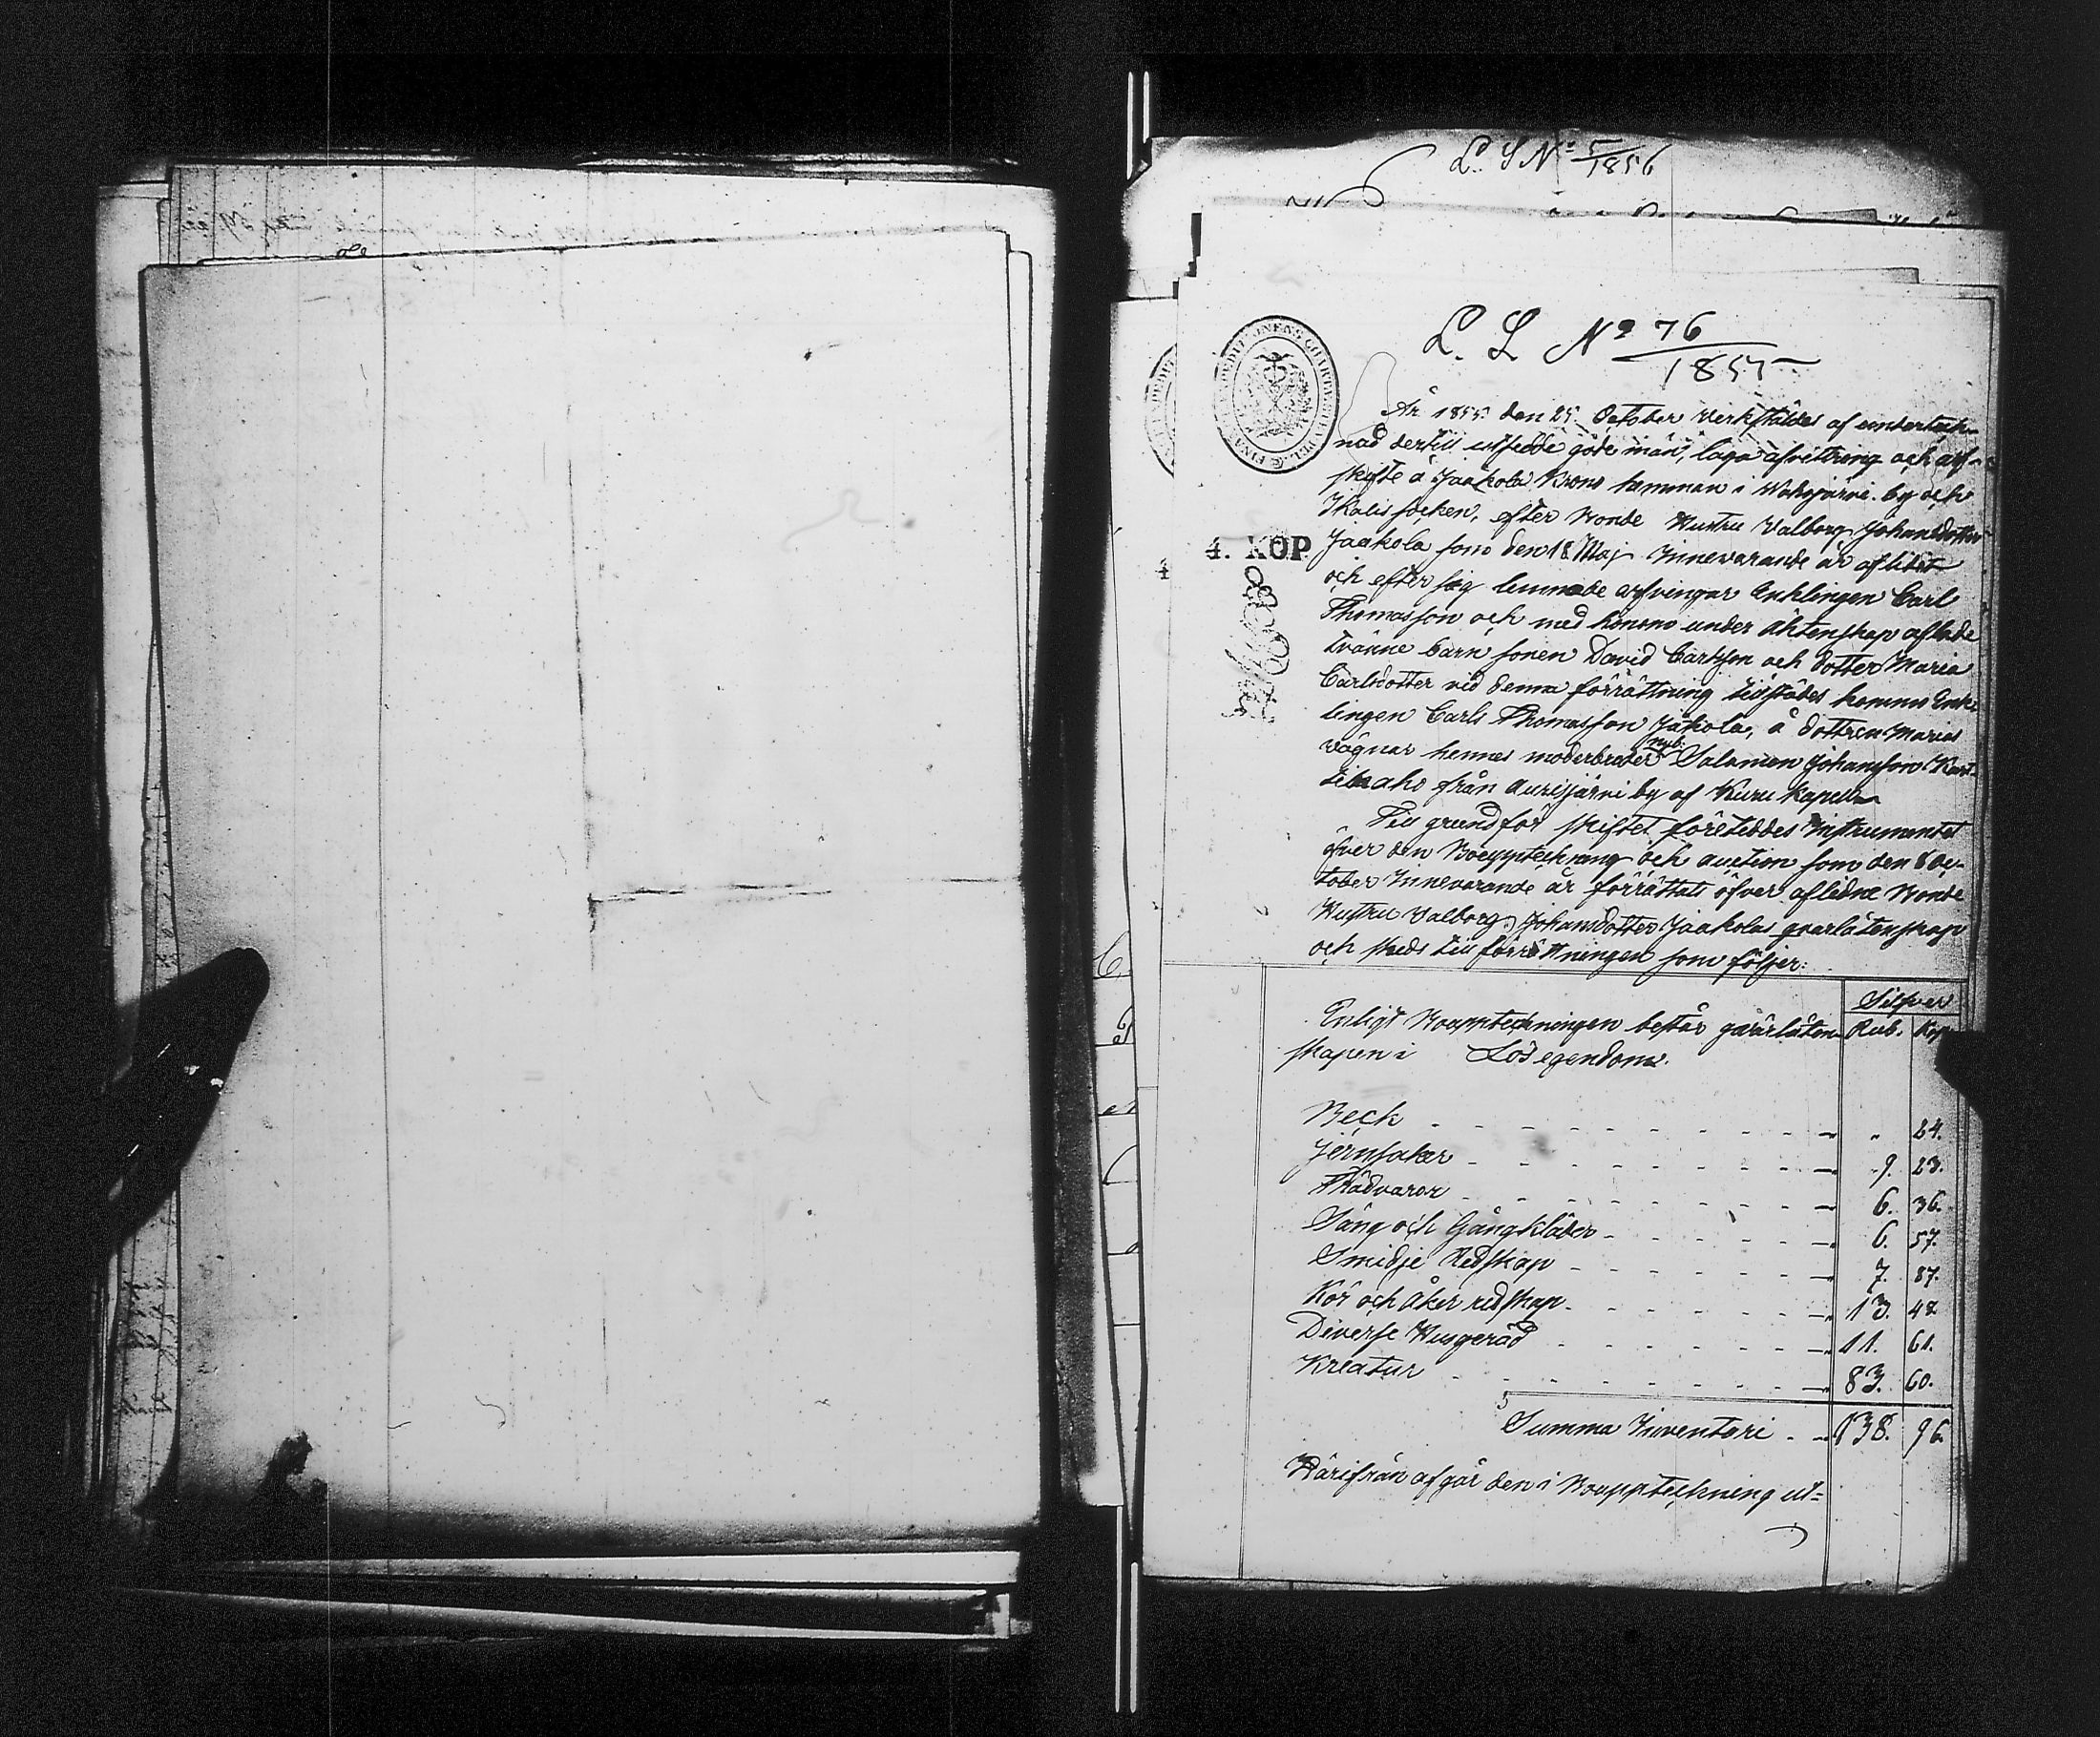 L. S N:o 5/1856
L. S N:o 76/1855
År 1855 den 25 October verkstäldes af underteck-
nad dertill utsedde gode män, laga afvittring och arf-
skifte å Jaakola Krono hemman i Wahojärvi by och
Ikalis socken, efter Bonde Hustru Valborg Johansdotter
4. KOP. Jaakola som den 18 Maj Innevarande år aflidit
och efter sig lemnade arfvingar Enklingen Carl
Thomasson och med honom under äktenskap aflade
tvänne barn sonen David Carlsson och dotter Maria
Carlsdotter vid denna förrättning tillstädes kommo Enk-
lingen Carl Thomasson Jakola, å dottren Marias
vägnar hennes moderbroder nyb: Salamon Johansson
aho från Aurejärvi by af Kuru Kapell
Till grund för skiftet företeddes Instrumentet
öfver den Bouppteckning och auction som den 8 Oc-
tober Innevarande år förrättats öfver aflidne Bonde
Hustru Valborg Johansdotter Jaakolas qvarlåtenskap
och skeds till förrättningen som följer:
Silfver
Enligt Bouppteckningen består qvarlåten- Rub. Kop
skapen i Lösegendom.
Beck - - - " 24.
Jernsaker - - - 9. 23.
Trädvaror - - - 6. 36.
Säng och Gångkläder - - - 6. 57.
Smidje Redskap - - - 7. 87.
Kör och åker redskap - - - 13. 48
Diverse Husgeråd - - - 11. 61.
Kreatur - - - 83. 60.
Summa Inventari - - 138. 96.
Härifrån afgår den i Bouppteckning ut=